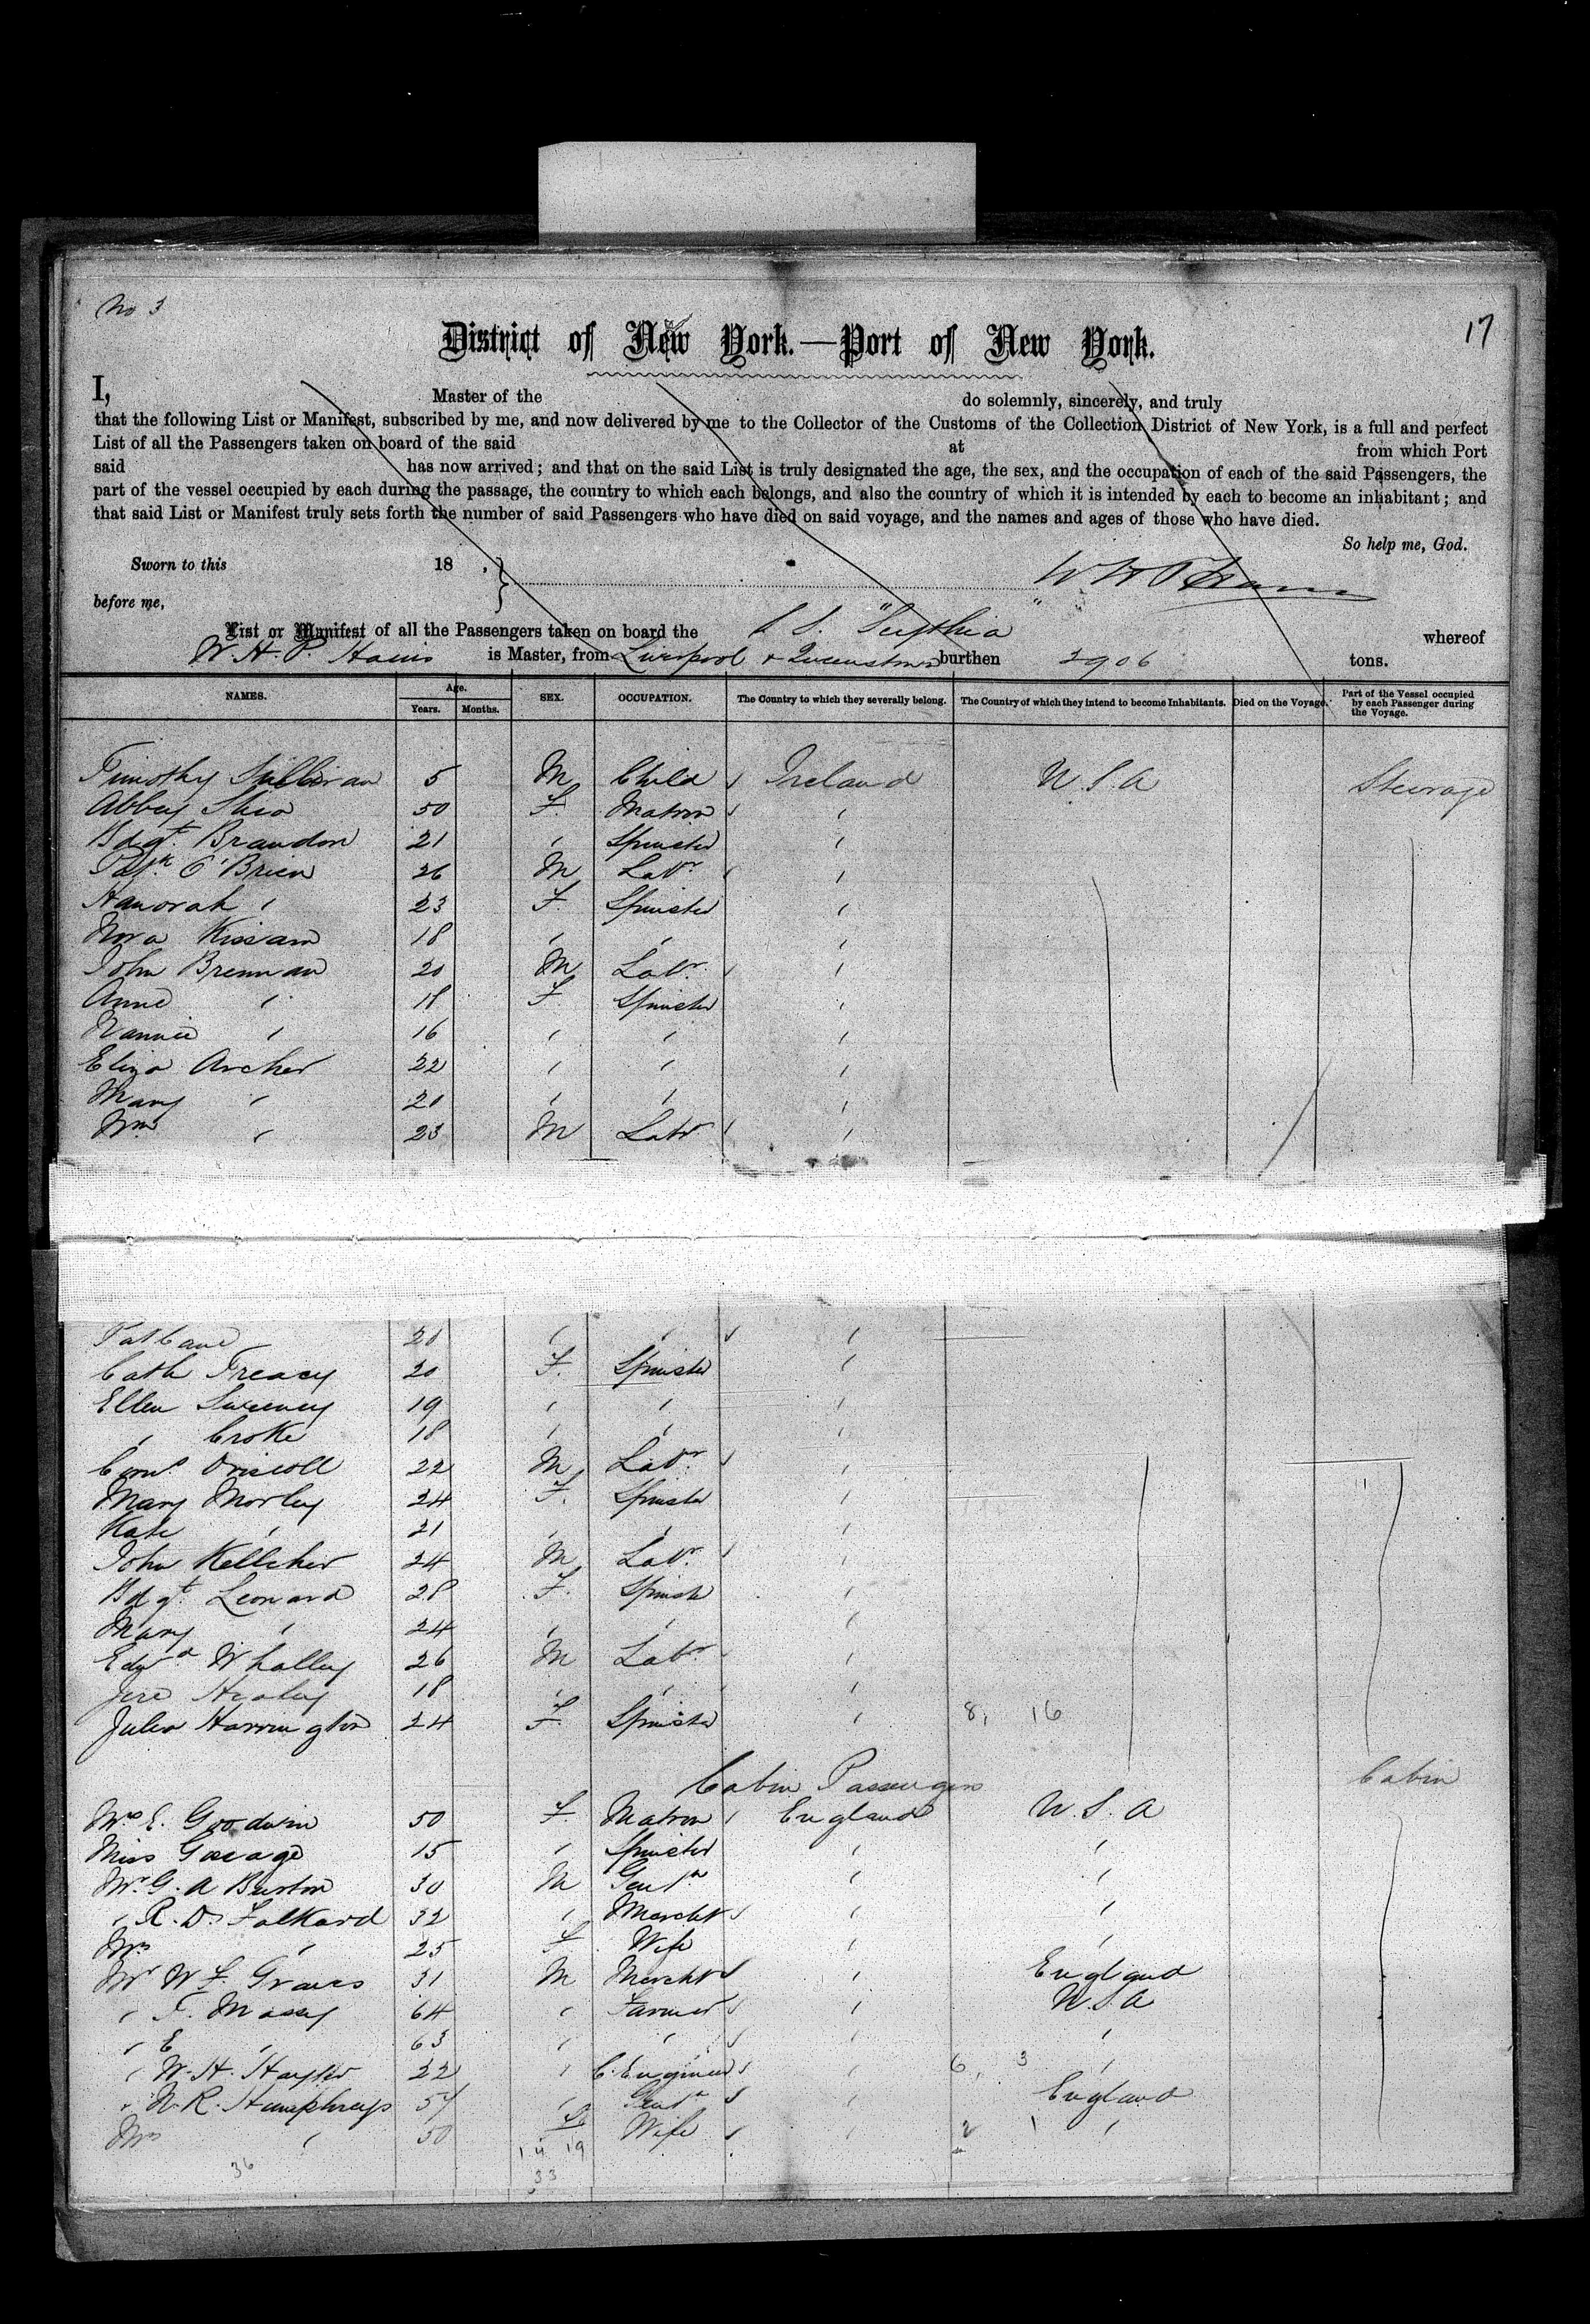 No 3
17
District of New York.—Port of New York.
I, Master of the do solemnly, sincerely, and truly
that the following List or Manifest, subscribed by me, and now delivered by me to the Collector of the Customs of the Collection District of New York, is a full and perfect
List of all the Passengers taken on board of the said at from which Port
said has now arrived; and that on the said List is truly designated the age, the sex, and the occupation of each of the said Passengers, the
part of the vessel occupied by each during the passage, the country to which each belongs, and also the country of which it is intended by each to become an inhabitant; and
that said List or Manifest truly sets forth the number of said Passengers who have died on said voyage, and the names and ages of those who have died.
So help me, God.
Sworn to this 18 .
before me,
List or Manifest of all the Passengers taken on board the S S. "Scythia" whereof
W. H. P. Hains is Master, from Liverpool & Queenstown burthen 2906 tons.
NAMES. Age. Years. Months. SEX. OCCUPATION. The Country to which they severally belong. The Country of which they intend to become Inhabitants. Died on the Voyage. Part of the Vessel occupied by each Passenger during the Voyage.
Timothy Sullivan 5 M Child Ireland U.S.A Steerage
Abbey Shea 50 F. Matron "
Bdgt. Brandon 21 " Spinster "
Patk O'Brien 26 M Labr "
Hanorah " 23 F. Spinster "
Nora Kissam 18 " " "
John Brennan 20 M Labr. "
Anne " 18 F Spinster "
Nannie " 16 " " "
Eliza Archer 22 " " "
Mary " 20 " " "
Wm " 23 M Labr "
Pat Cane 20 " " "
Cath Treacy 20 F. Spinster "
Ellen Sweeney 19 " " "
" Croke 18 " " "
Corns. Driscoll 22 M Labr. "
Mary Morley 24 F. Spinster "
Kate " 21 " " "
John Kelliher 24 M Labr. "
Bdgt. Leonard 28 F. Spinste "
Mary " 24 " " "
Edwd Whalley 26 M Labr "
Jere Healey 18 " " "
Julia Harrington 24 F. Spinster " 8, 16
Cabin Passengers Cabin
Mrs E. Goodwin 50 F. Matron England U.S.A
Miss Gocage 15 " Spinster " "
Mr. G. A Burton 30 M Gentn " "
" R. D. Falkard 32 " Mercht " "
Mrs " 25 F Wife " "
Mr W F. Graves 31 M Mercht " England
" T. Massy 64 " Farmer " U.S.A
" E " 63 " " " "
" W. H. Hayter 22 " C. Engineer " 6, 3 "
" N. R. Humphreys 54 " Gentn " England
Mrs " 50 F Wife " 2 1 "
14 19
36 33